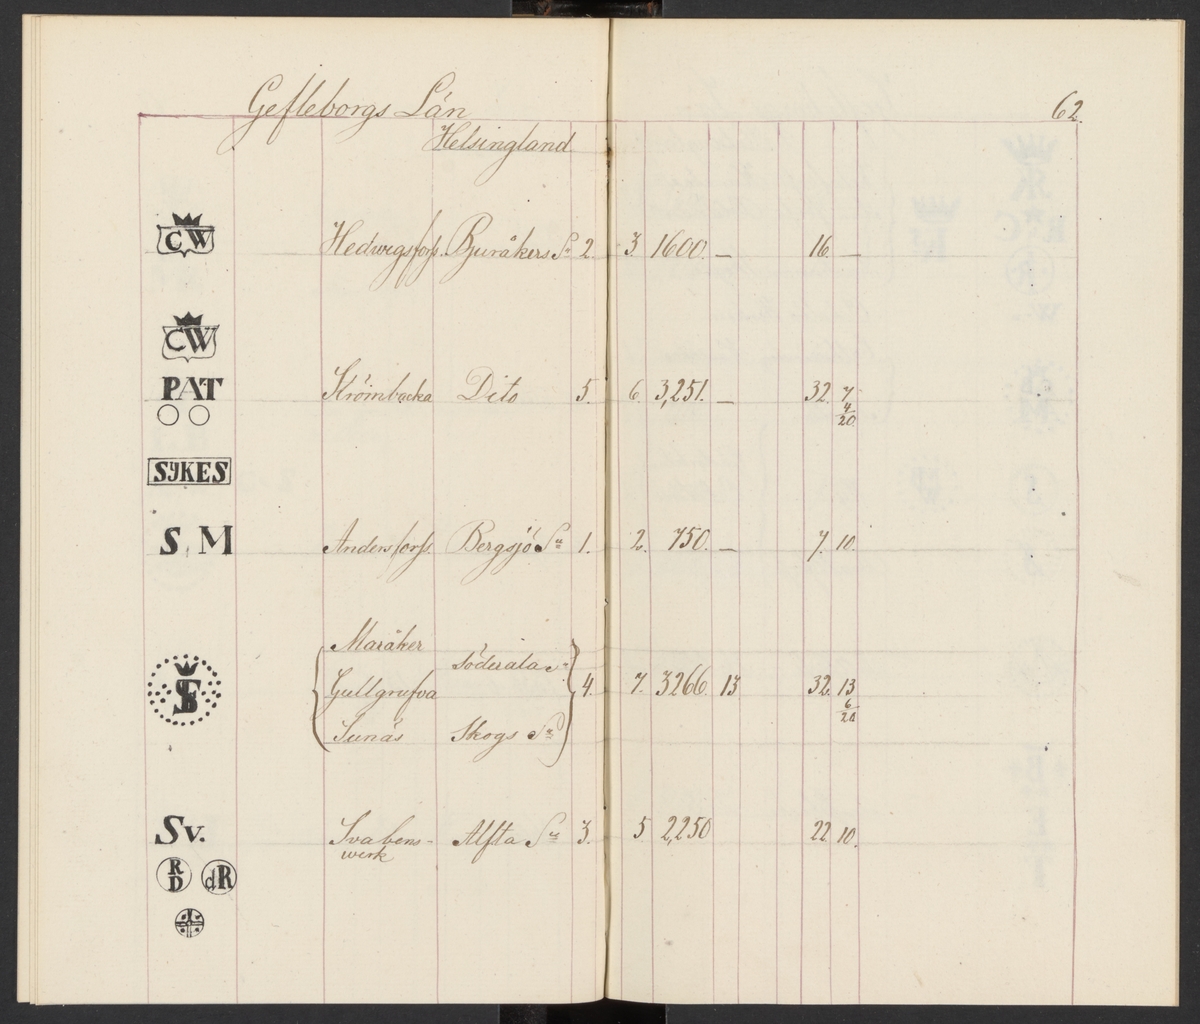 Gefleborgs Län
62.
Helsingland
CW Hedwigsfors. Bjuråkers Sn 2. 3. 1600. — 16. —
CW
PAT Strömbacka Dito 5. 6. 3,251. — 32. 7 4/20
SYKES
S M Andersfors. Bergsjö Sn 1. 2. 750. — 7. 10.
Maråker
Söderala Sn
Gullgrufva 4. 7. 3266. 13 32. 13 6/20
Sunäs Skogs Sn
Sv. Svabens- Alfta Sn 3. 5 2,250 22. 10.
werk
RD dR